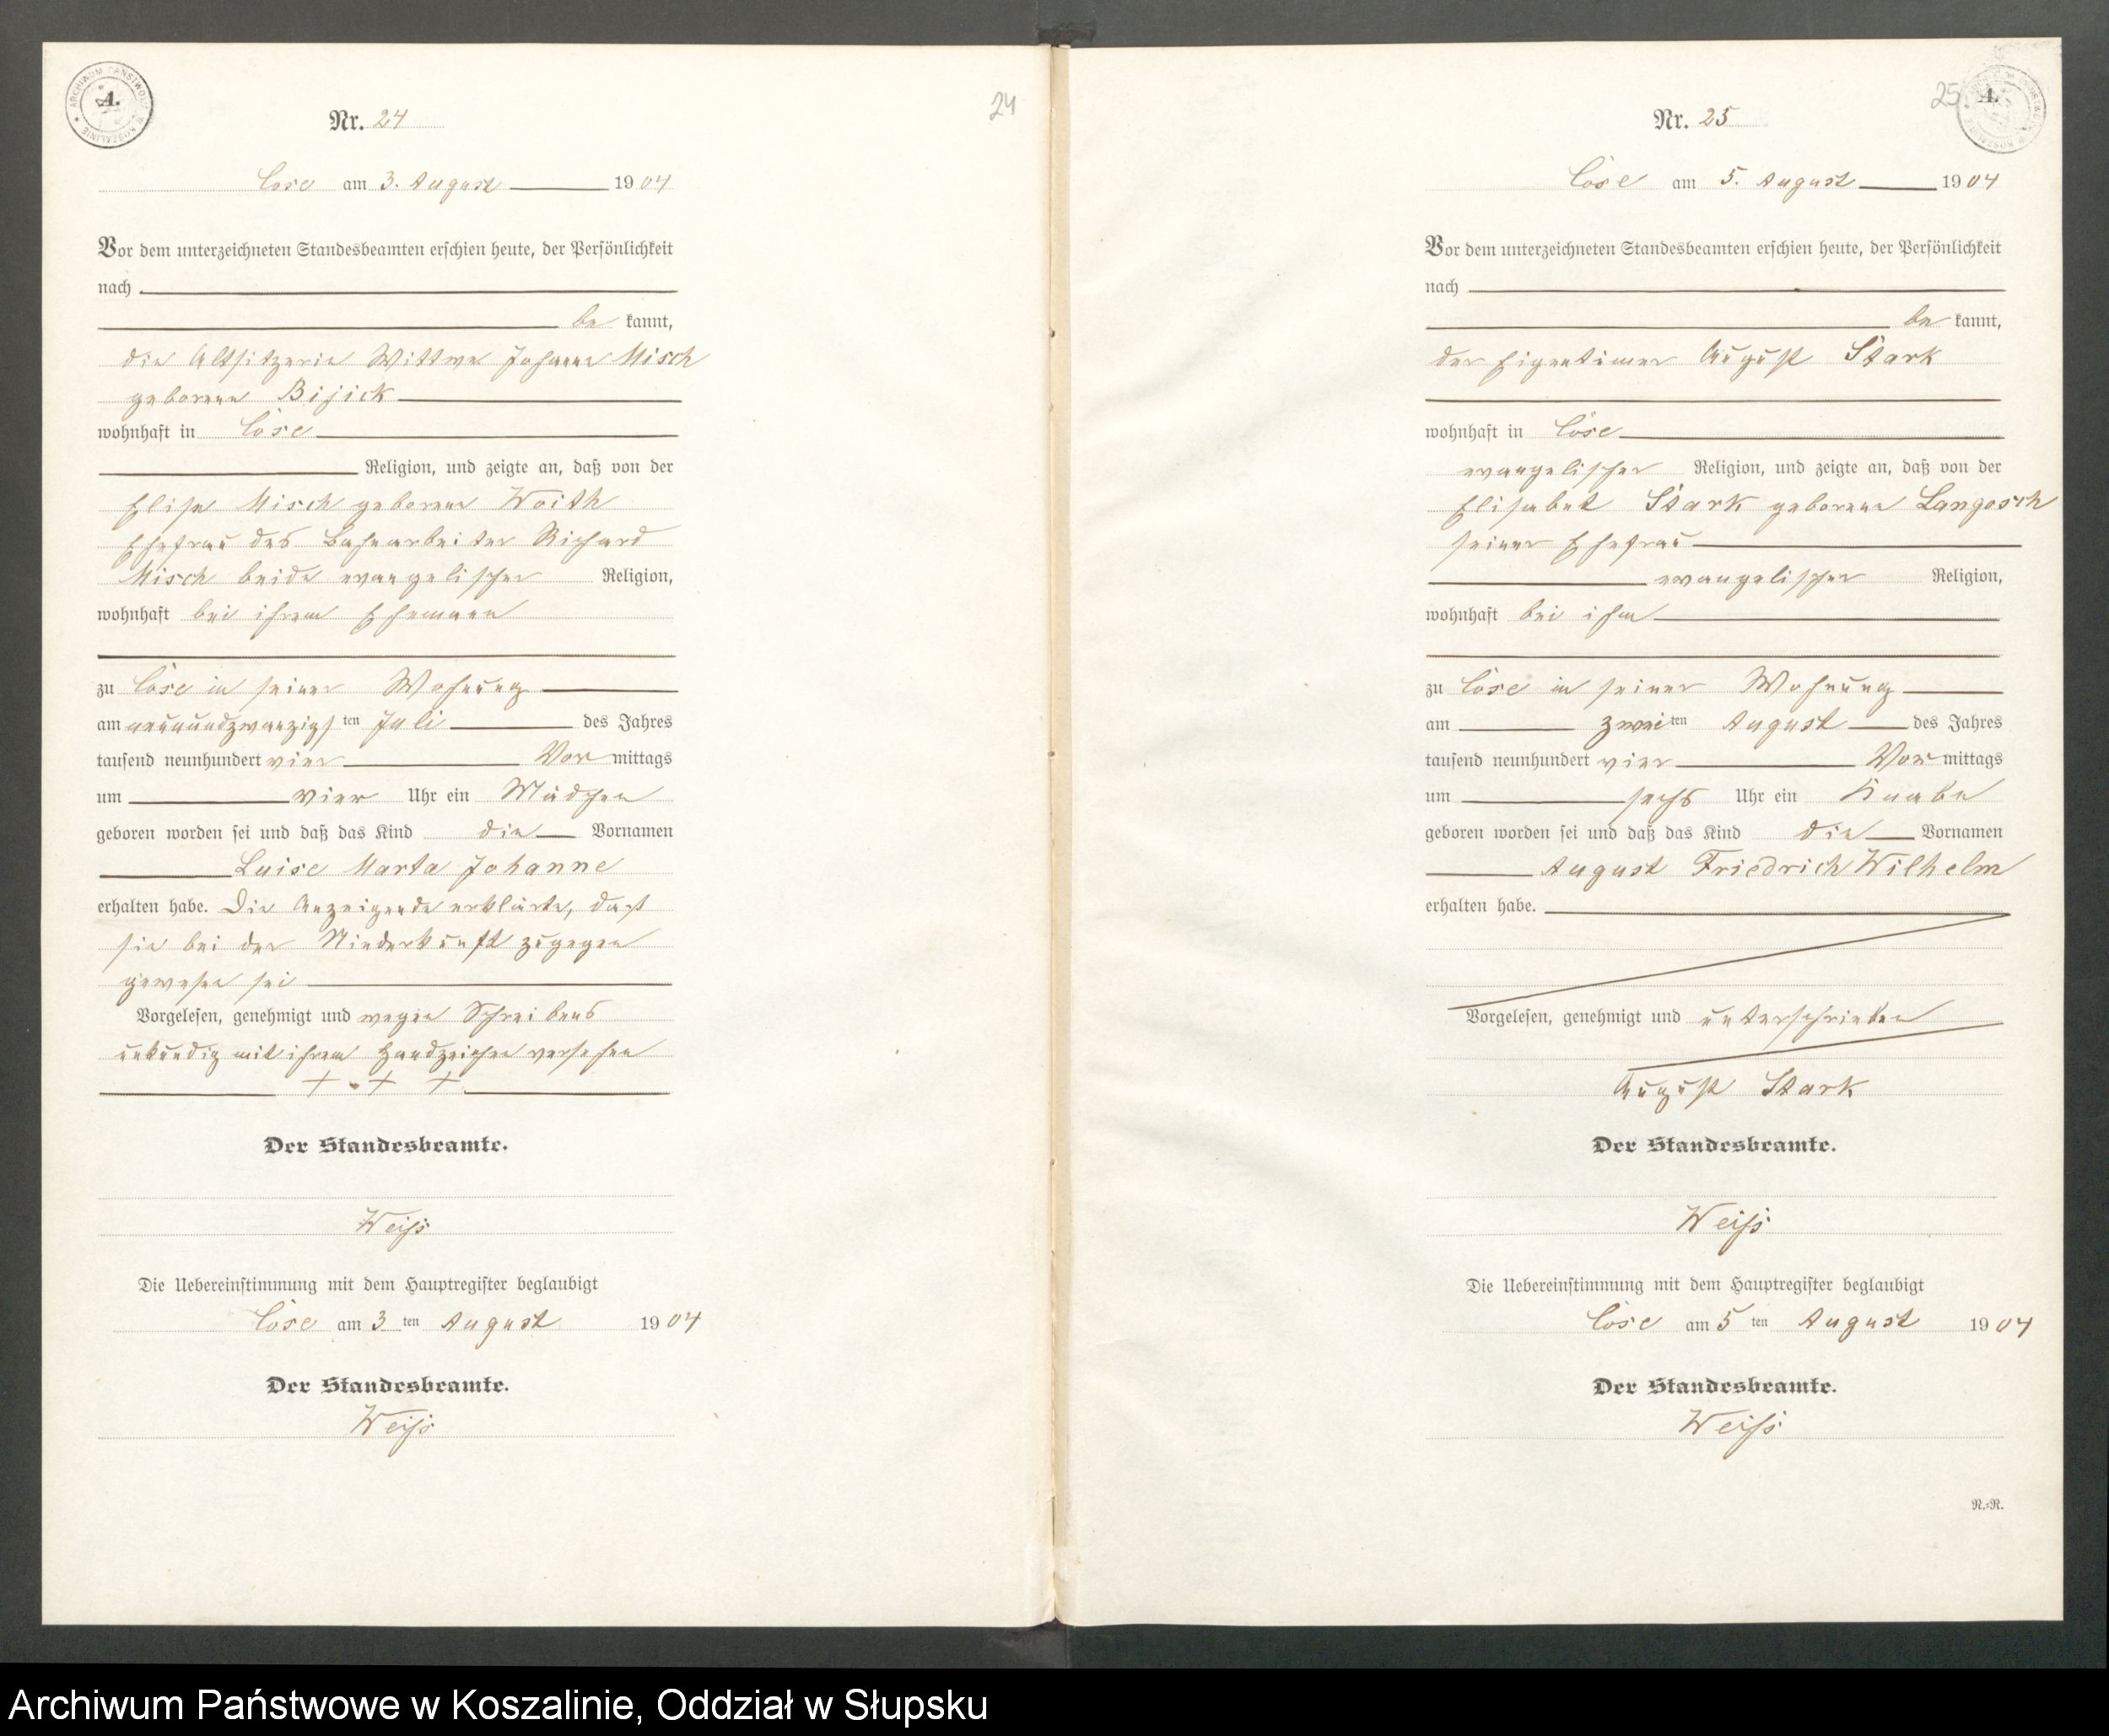 Nr. 24
24
Löse am 3. August 1904
Vor dem unterzeichneten Standesbeamten erschien heute, der Persönlichkeit
nach
be kannt,
die Altsitzerin Wittwe Johanne Misch
geborene
wohnhaft in Löse
Religion, und zeigte an, daß von der
Elise Misch geborene Woith
Ehefrau des Bahnarbeiter Richard
Misch beide evangelischer Religion,
wohnhaft bei ihrem Ehemann
zu Löse in seiner Wohnung
am neunundzwanzigsten Juli des Jahres
tausend neunhundert vier Vor mittags
um vier Uhr ein Mädchen
geboren worden sei und daß das Kind die Vornamen
Luise Marta Johanne
erhalten habe. Die Anzeigende erklärte, daß
sie bei der Niederkunft zugegen
gewesen sei
Vorgelesen, genehmigt und wegen Schreibens
unkundig mit ihrem Handzeichen versehen
+ + +
Der Standesbeamte.
Weiß
Die Uebereinstimmung mit dem Hauptregister beglaubigt
Löse am 3 ten August 1904
Der Standesbeamte.
Weiß
A.
ARCHIWUM PAŃSTWOWE W KOSZALINIE
Nr. 25
25
A.
Löse am 5. August 1904
Vor dem unterzeichneten Standesbeamten erschien heute, der Persönlichkeit
nach
be kannt,
der Eigentümer August Stark
wohnhaft in Löse
evangelischer Religion, und zeigte an, daß von der
Elisabet Stark geborene Langosch
seiner Ehefrau
evangelischer Religion,
wohnhaft bei ihm
zu Löse in seiner Wohnung
am zweiten August des Jahres
tausend neunhundert vier Vor mittags
um sechs Uhr ein Knabe
geboren worden sei und daß das Kind die Vornamen
August Friedrich Wilhelm
erhalten habe.
Vorgelesen, genehmigt und unterschrieben
August Stark
Der Standesbeamte.
Weiß
Die Uebereinstimmung mit dem Hauptregister beglaubigt
Löse am 5 ten August 1904
Der Standesbeamte.
Weiß
R.=R.
Archiwum Państwowe w Koszalinie, Oddział w Słupsku